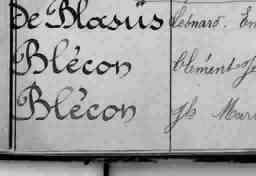 De Blasiis Léonard. Em
Blécon Clément J
Blécon Jh Mari